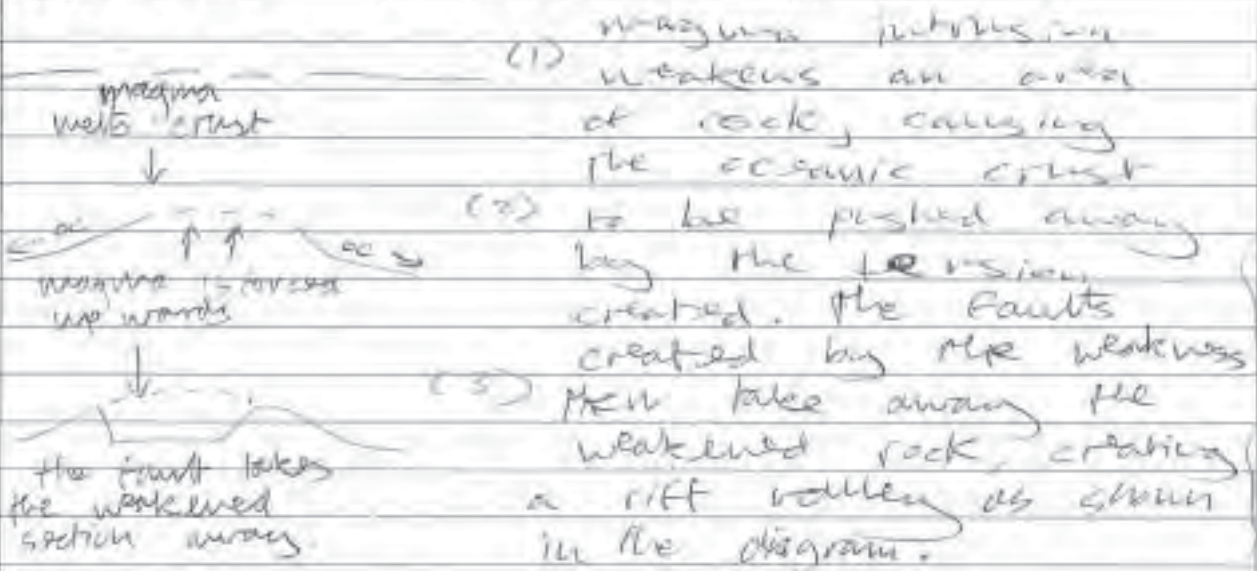 magma
melts crust
oc
oc
magma is forced
upwards
the fault takes
the weakened
section away.
(1) magma intrusion
weakens an area
of rock, causing
the oceanic crust
(2) to be pushed away
by the tension
created. The faults
created by the weakness
(3) then take away the
weakened rock, creating
a rift valley as shown
in the diagram.